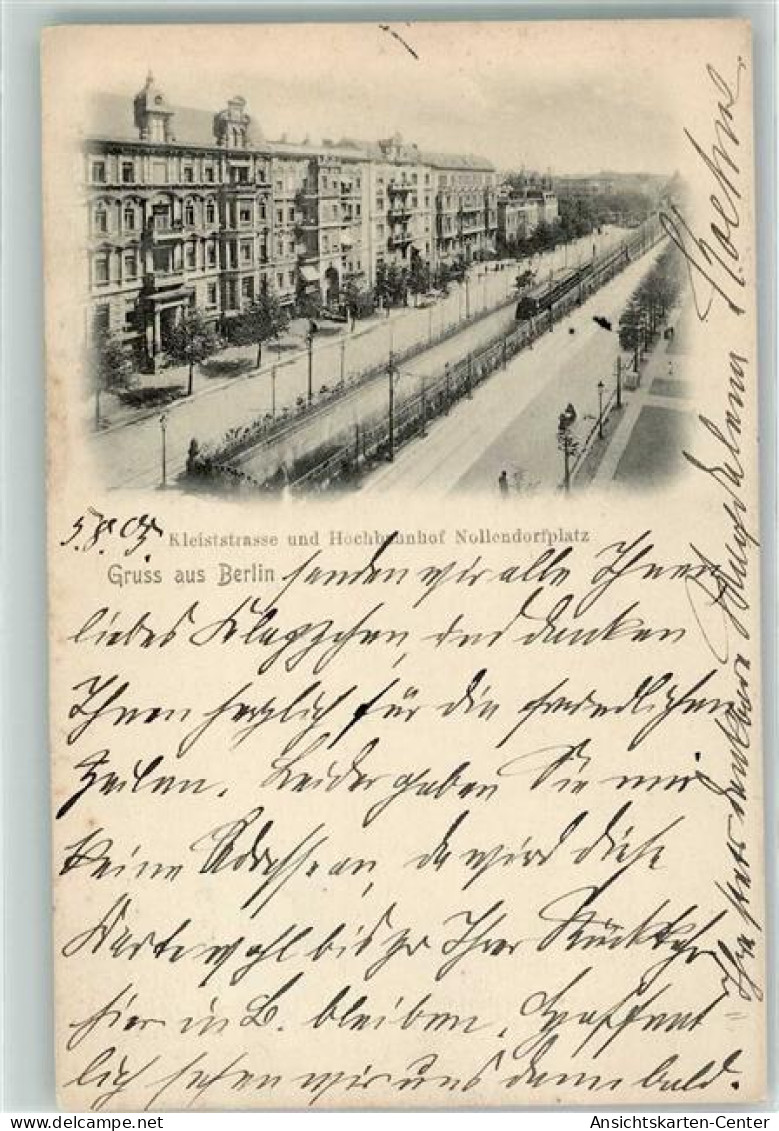 5.8.05.
Kleiststrasse und Hochbahnhof Nollendorfplatz
Gruss aus Berlin senden wir alle Ihnen
liebes Klappchen, und danken
Ihnen herzlich für die freundlichen
Zeilen. Leider geben Sie mir
keine Adresse an, da wird diese
Karte wohl bis zu Ihrer Rückkehr
hier in B. bleiben. Hoffent-
lich sehen wir uns dann bald.
Ihre stets dankbare Magdalena
Ansichtskarten-Center